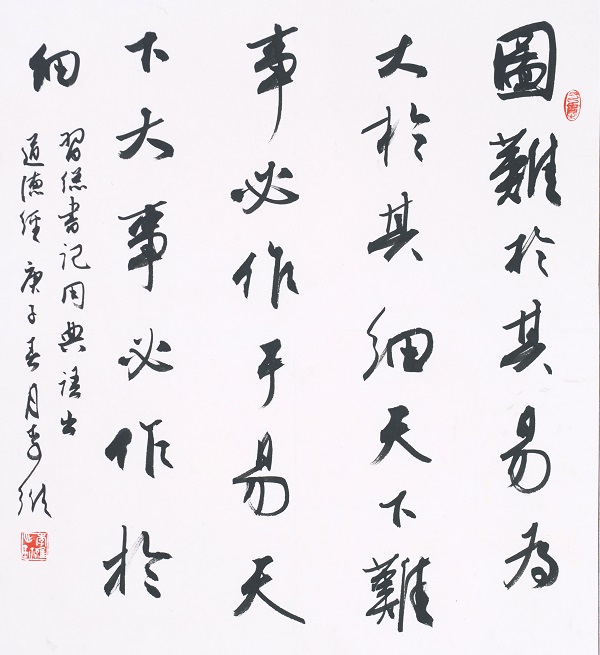 圖難於其易為
大於其細天下難
事必作于易天
下大事必作於
細
習總書記用典語出
道德經庚子春月李